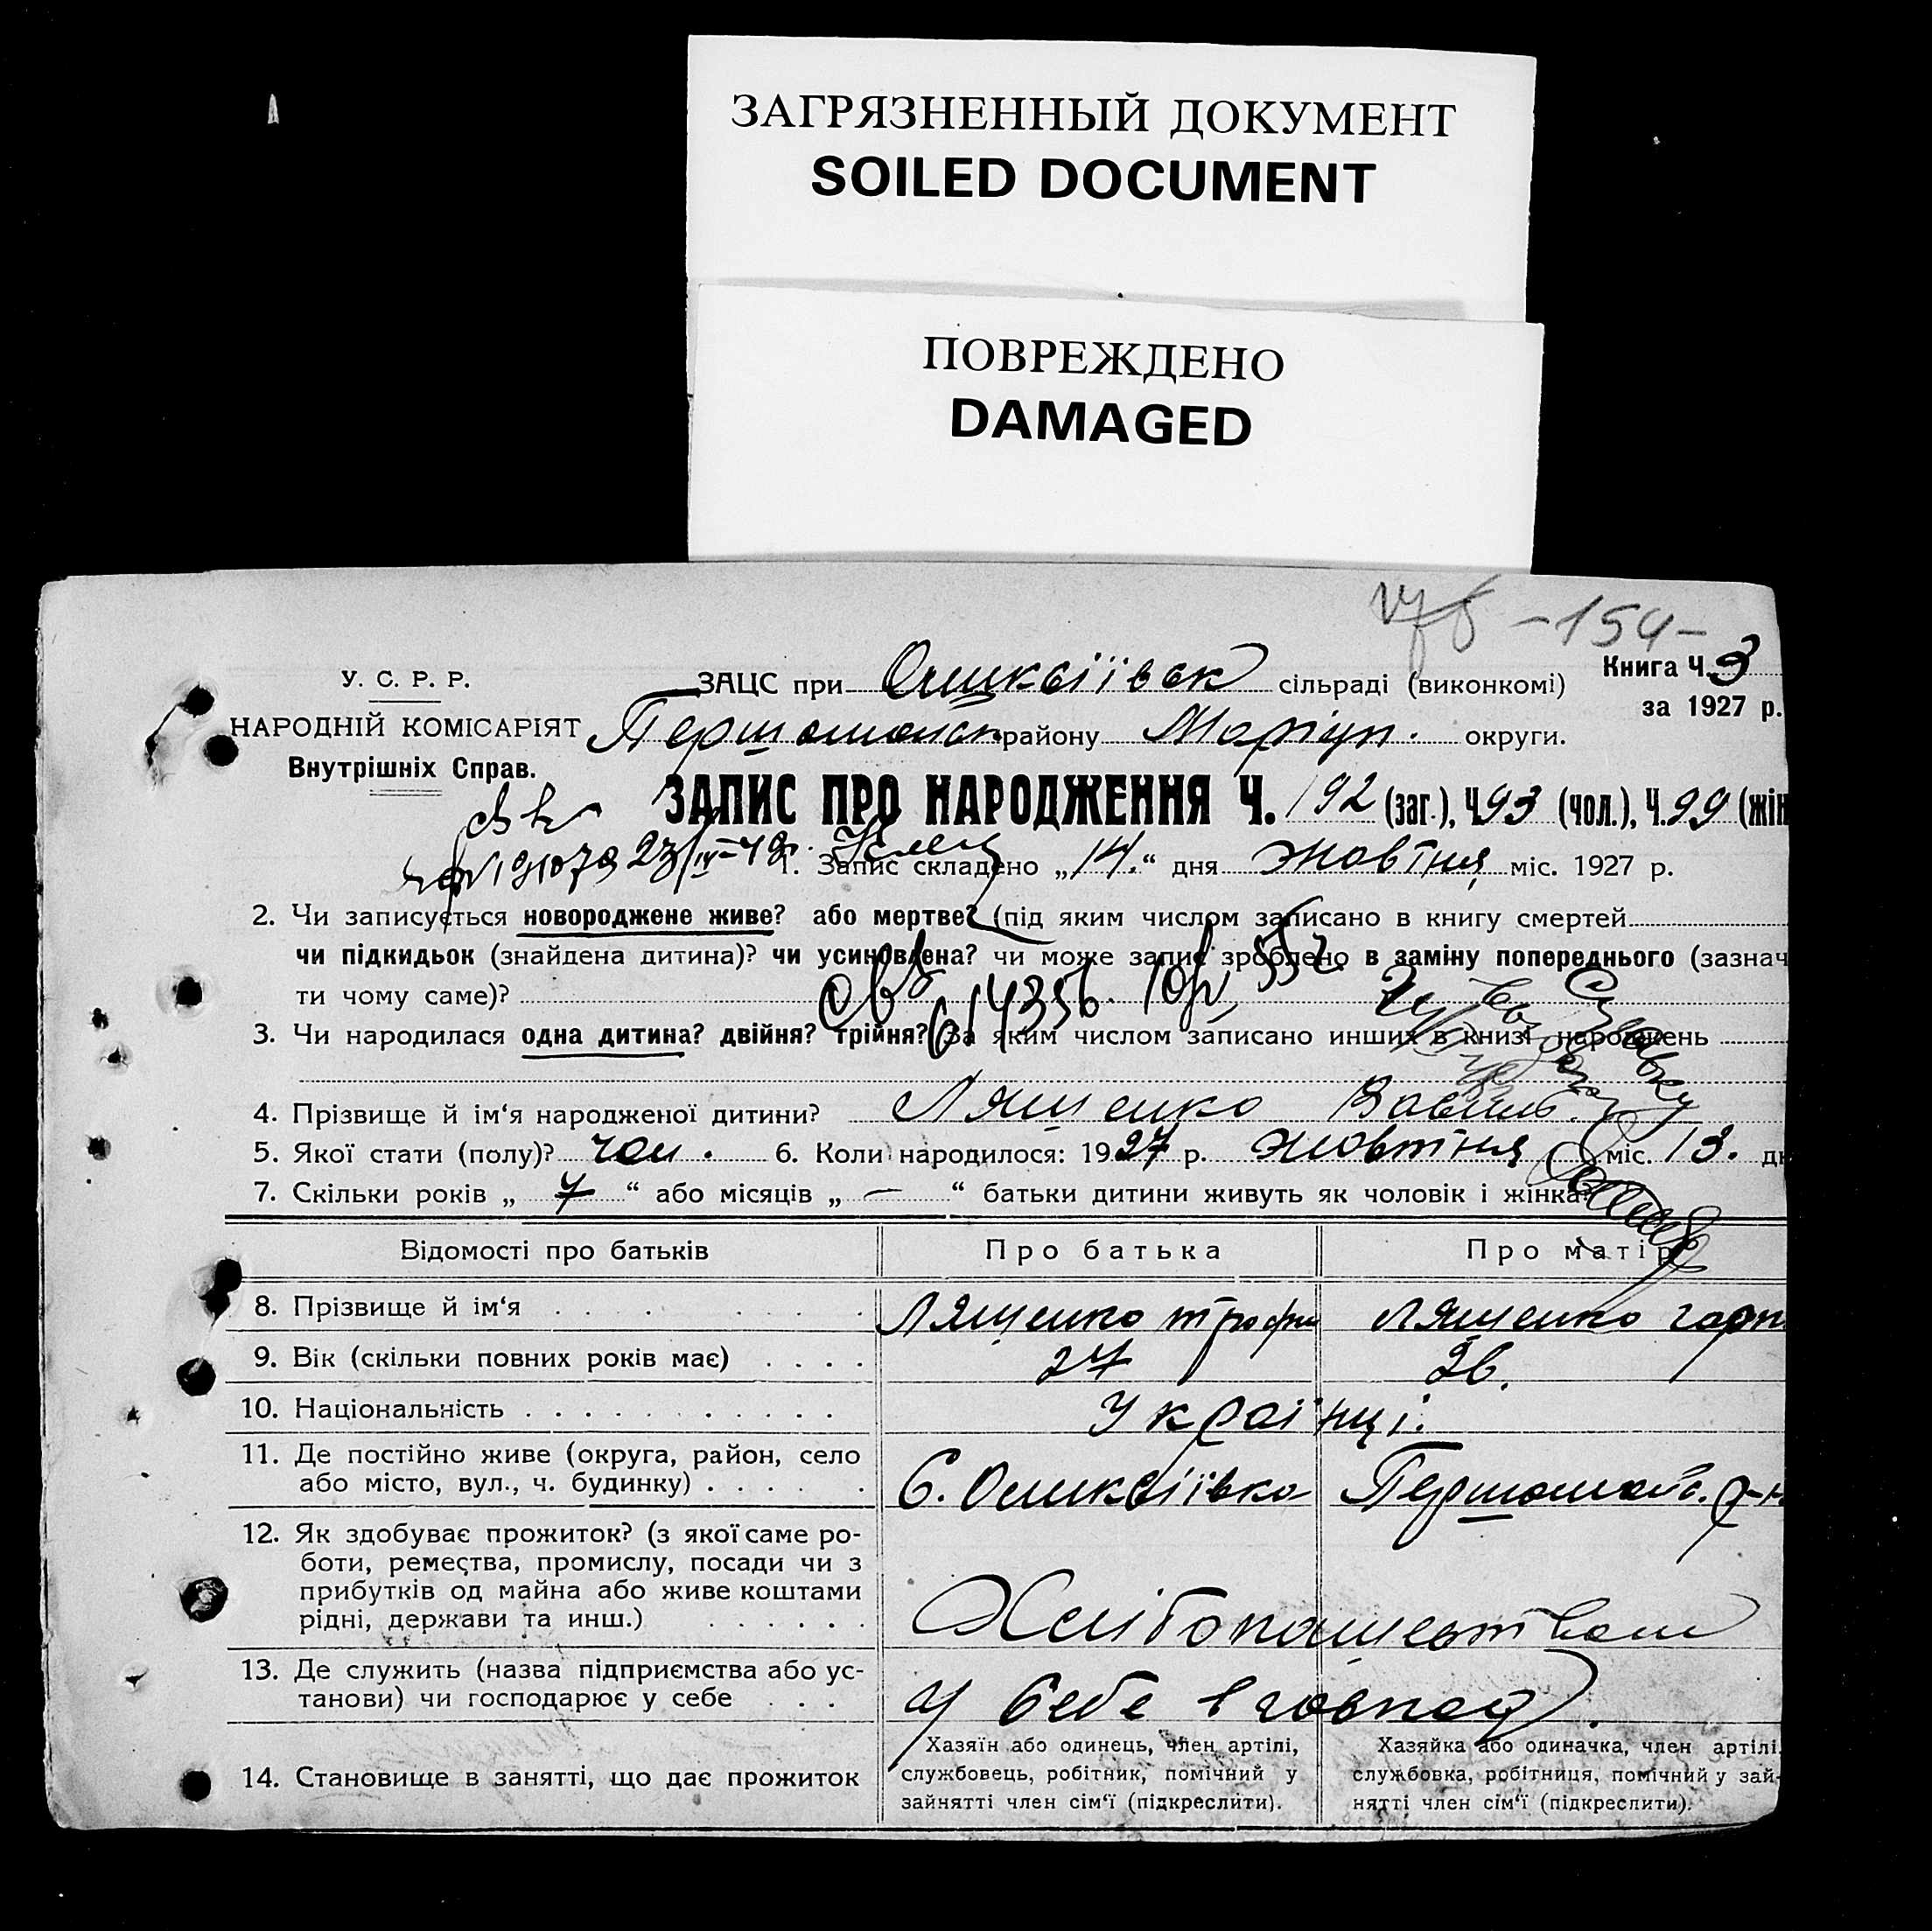 ЗАГРЯЗНЕННЫЙ ДОКУМЕНТ
SOILED DOCUMENT
ПОВРЕЖДЕНО
DAMAGED
-154-
У. С. Р. Р.
ЗАЦС при сільраді (виконкомі)
Книга Ч. 3
за 1927 р.
НАРОДНІЙ КОМІСАРІЯТ
Внутрішніх Справ.
Першомайськ. району Маріуп. округи.
ЗАПИС ПРО НАРОДЖЕННЯ Ч. 192 (заг.), Ч. 93 (чол.), Ч. 99 (жін
1. Запис складено „14.“ дня Жовтня міс. 1927 р.
2. Чи записується новороджене живе? або мертве? (під яким числом записано в книгу смертей
чи підкидьок (знайдена дитина)? чи усиновлена? чи може запис зроблено в заміну попереднього (зазнач
ти чому саме)?
3. Чи народилася одна дитина? двійня? трійня? За яким числом записано инших в книзі народжень
4. Прізвище й ім‘я народженої дитини? Лященко Василь.
5. Якої стати (полу)? чол. 6. Коли народилося: 1927 р. жовтня міс. 13. дн
7. Скільки років „ 7 “ або місяців „ — “ батьки дитини живуть як чоловік і жінка?
Відомості про батьків Про батька Про матір
8. Прізвище й ім‘я Лященко Трофи Лященко Гарп
9. Вік (скільки повних років має) 27 26.
10. Національність Українці.
11. Де постійно живе (округа, район, село
або місто, вул., ч. будинку) Першомайс. р-н
12. Як здобуває прожиток? (з якої саме ро-
боти, ремества, промислу, посади чи з
прибутків од майна або живе коштами
рідні, держави та инш.) Хлібопашеством
13. Де служить (назва підприємства або ус-
танови) чи господарює у себе У себе в господ.
14. Становище в занятті, що дає прожиток
Хазяїн або одинець, член артілі,
службовець, робітник, помічний у
зайнятті член сім‘ї (підкреслити).
Хазяйка або одиначка, член артілі,
службовка, робітниця, помічний у зай-
нятті член сім‘ї (підкреслити).